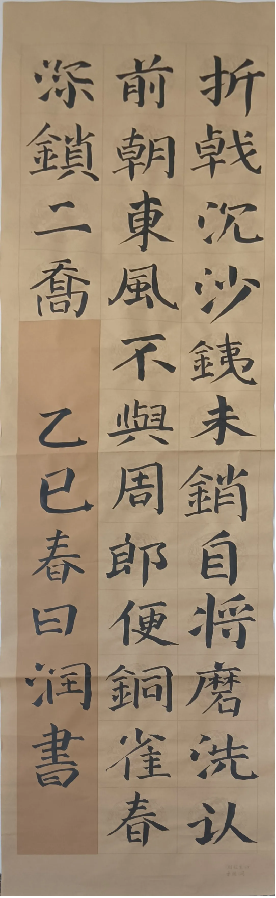 折戟沉沙銕未銷自将磨洗认
前朝東風不與周郎便銅雀春
深鎖二喬
乙巳春曰润書